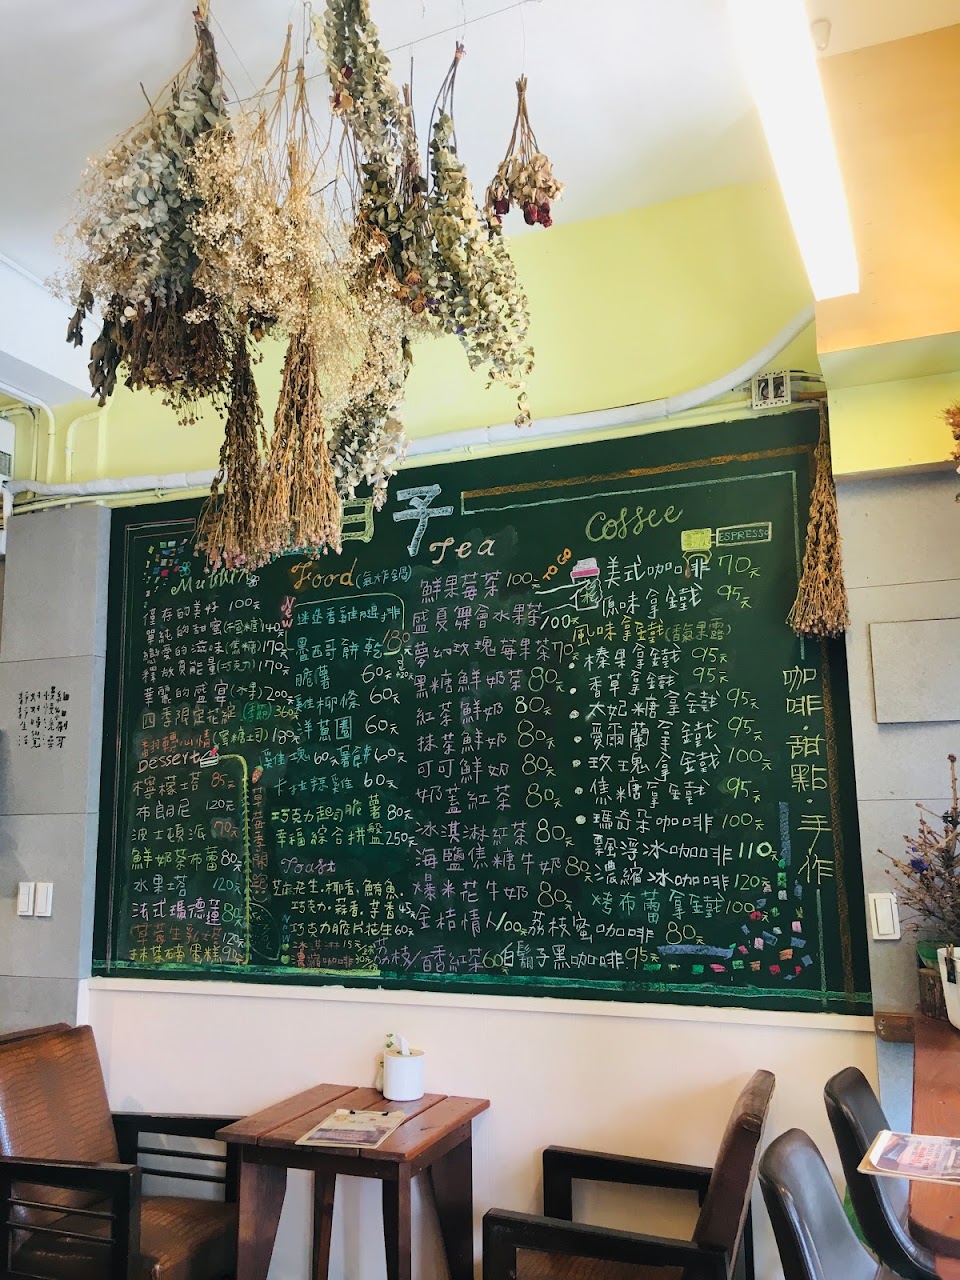 日子
Muffin
僅存的美好 100元
單純的甜蜜(焦糖)140元
戀愛的滋味(焦糖)170元
釋放負能量(巧克力)170元
華麗的盛宴(水果)200元
四季限定花綻(季節)360元
翻轉心情(蜜糖吐司)180元
Dessert
檸檬塔 85元
布朗尼 120元
波士頓派 70元
鮮奶茶布蕾 80元
水果塔 120元
法式瑪德蓮 80元
草莓生乳 120元
抹茶 蛋糕 90元
Food(氣炸鍋)
New
迷迭香雞腿排
180元
墨西哥餅乾
脆薯 60元
雞柳條 60元
洋蔥圈 60元
雞塊 60元 薯餅 60元
卡拉 雞 60元
巧克力起司脆薯 80元
幸福綜合拼盤 250元
Toast
花生.椰香.鮪魚.
巧克力.蒜香.芋香 45元
巧克力脆片花生 60元
冰淇淋 15元
濃縮咖啡 30元
Tea
鮮果莓茶 100元
盛夏舞會水果茶 100元
夢幻玫瑰莓果茶 70元
黑糖鮮奶茶 80元
紅茶鮮奶 80元
抹茶鮮奶 80元
可可鮮奶 80元
奶蓋紅茶 80元
冰淇淋紅茶 80元
海鹽焦糖牛奶 80元
爆米花牛奶 80元
金桔情人 100元
荔枝/百香紅茶 60元
Coffee
TO GO
ESPRESSO
美式咖啡 70元
原味拿鐵 95元
風味拿鐵(香氣果露)
榛果拿鐵 95元
香草拿鐵 95元
太妃糖拿鐵 95元
愛爾蘭拿鐵 95元
玫瑰拿鐵 100元
焦糖拿鐵 95元
瑪奇朵咖啡 100元
飄浮冰咖啡 110元
濃縮冰咖啡 120元
烤布蕾拿鐵 100元
荔枝蜜咖啡 80元
白鬍子黑咖啡 95元
咖啡·甜點·手作